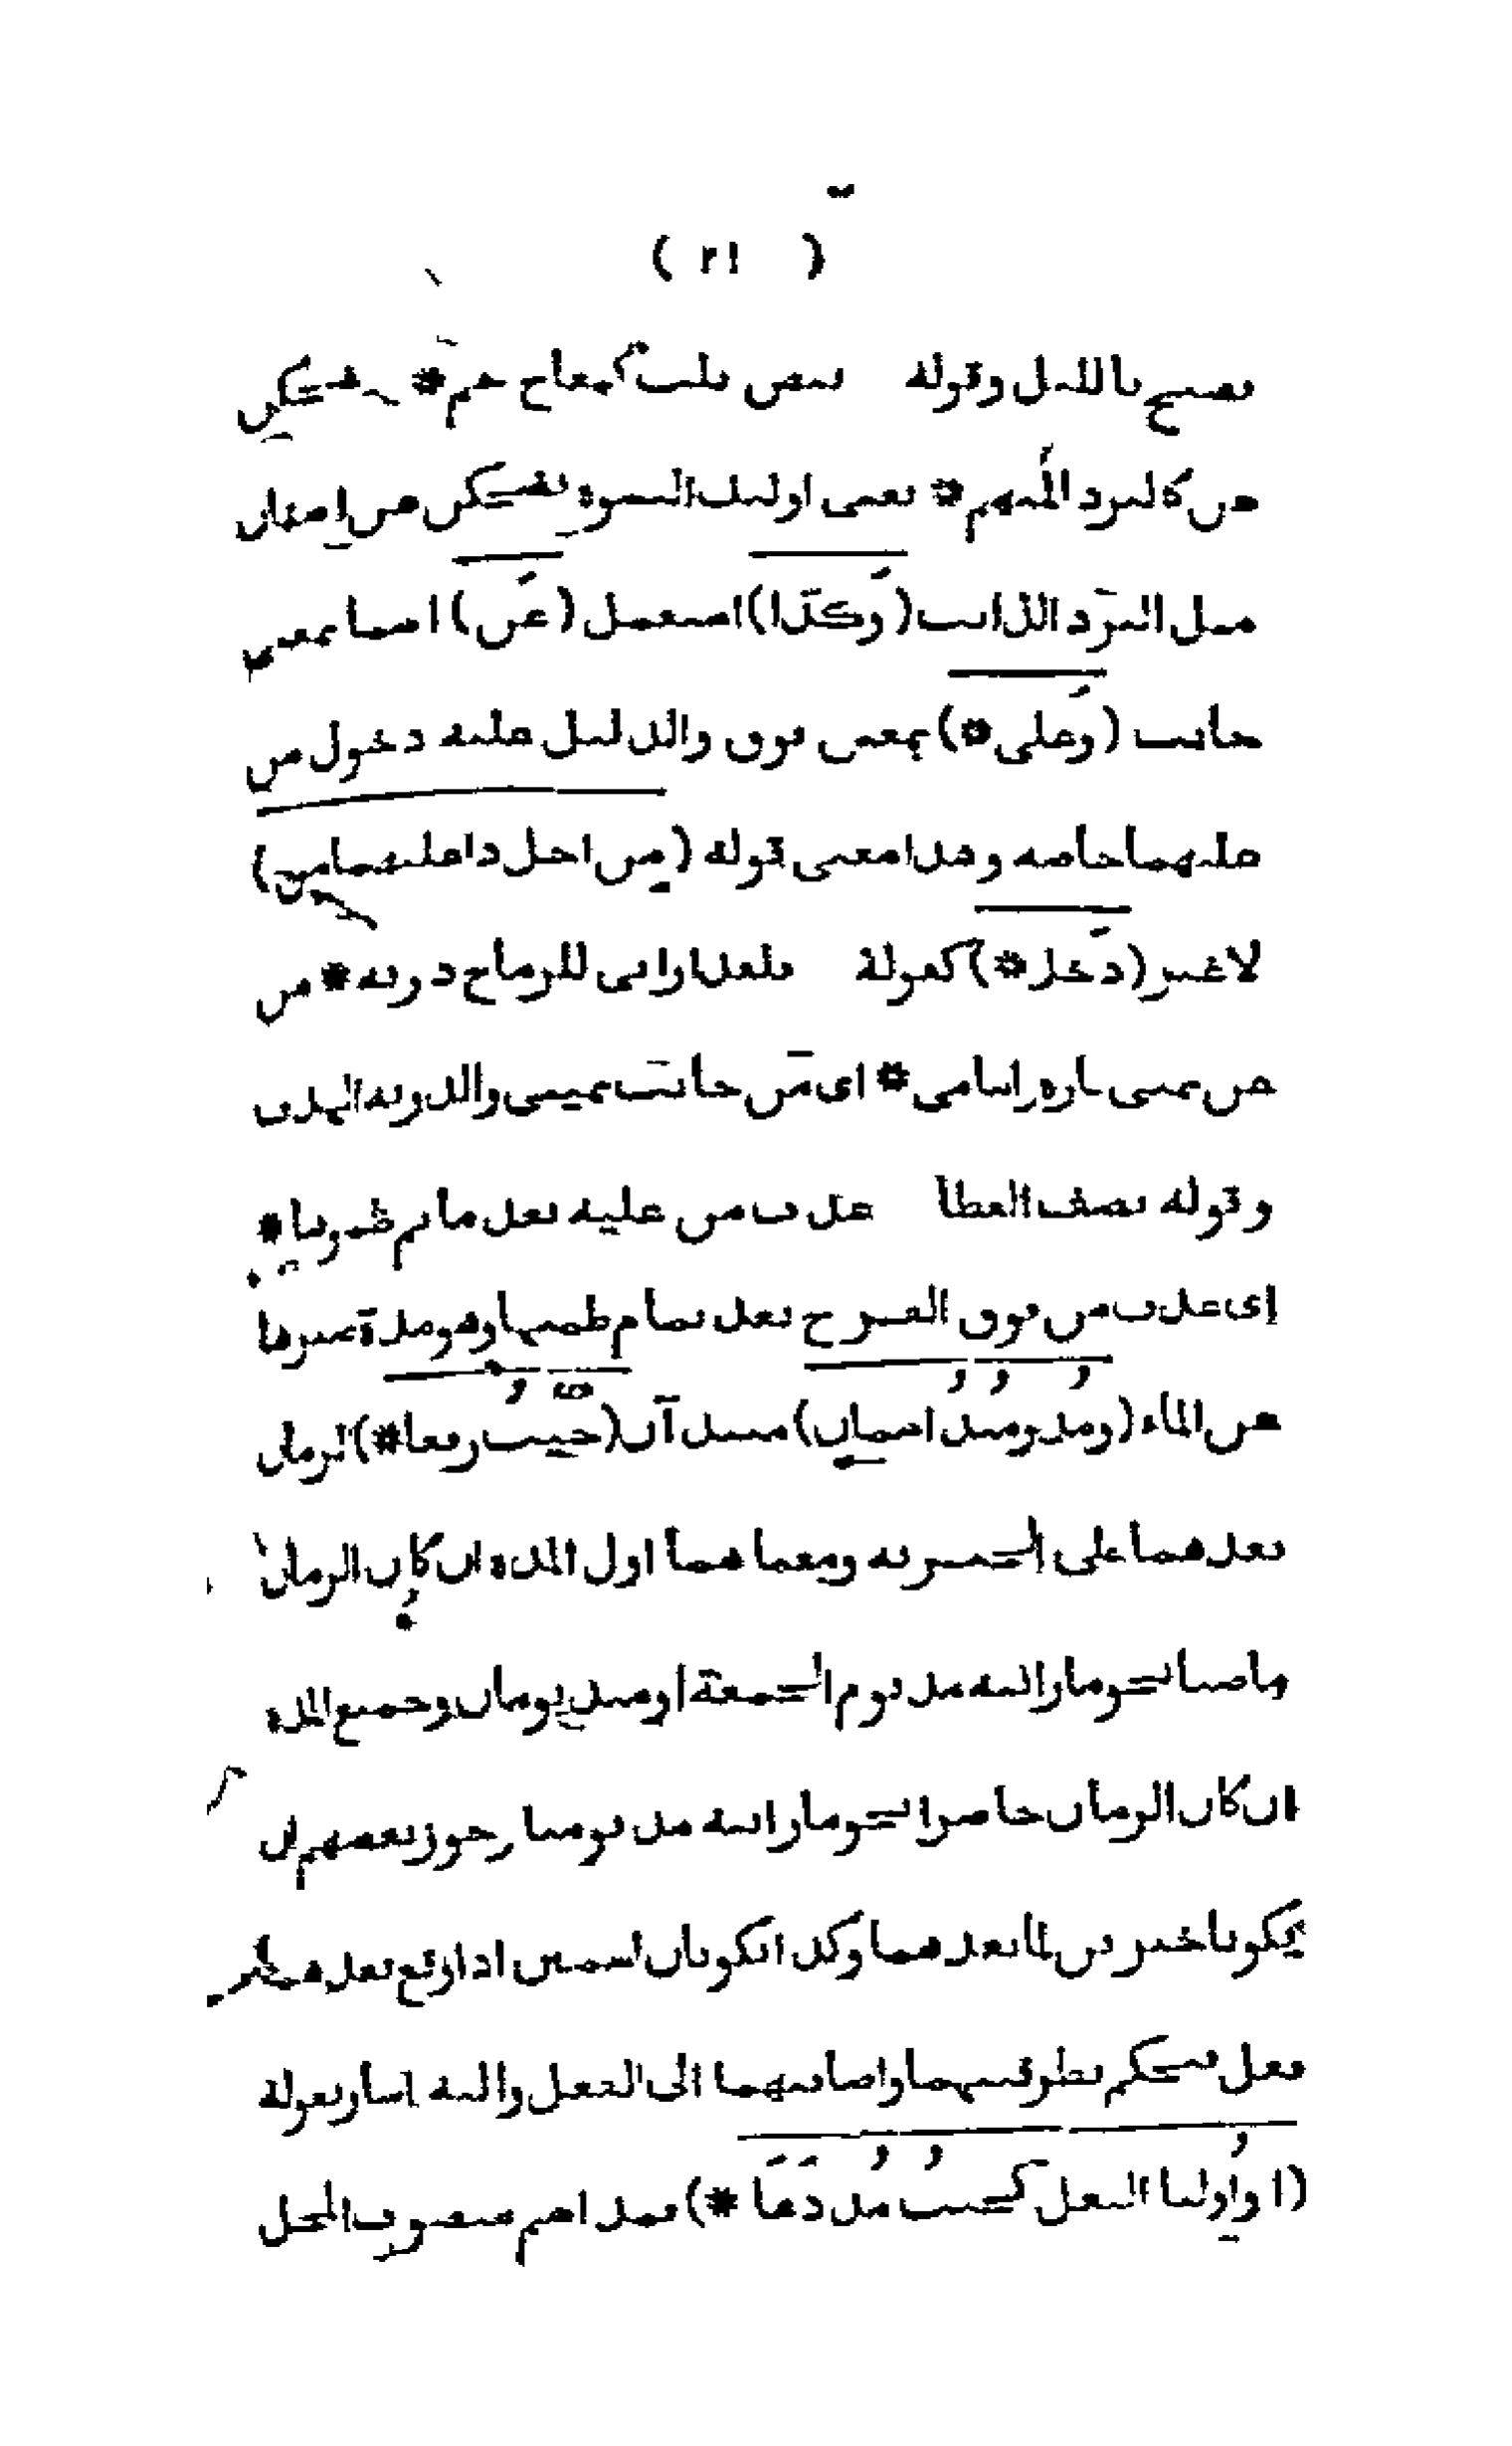 ( ٢١ )
تصبح بالليل وقوله بيض ثلث كنعاج جم * يضحكن
عن كالبرد المنهم * يعني اولئك النسوة يضحكن عن اسنان
مثل البرد الذائب (وكذا) استعمل (عن) اسما بمعنى
جانب (وعلى *) بمعنى فوق والدليل عليه دخول من
عليهما خاصة وهذا معنى قوله (من اجل ذا عليهما من)
لا غير (دخل *) كقوله فلقد اراني للرماح دريه * من
عن يميني تارة وامامي * اي من جانب يميني والدريه الهدف
وقوله يصف القطا غدت من عليه بعد ما تم ظمؤها *
اي غدت من فوق الفرخ بعد تمام ظمئها وهو مدة صبرها
عن الماء (ومذ ومنذ اسمان) مبتدآن (حيث رفعا *) الزمان
بعدهما على الخبرية ومعناهما اول المدة ان كان الزمان
ماضيا نحو ما رأيته مذ يوم الجمعة او منذ يومان وجميع المدة
ان كان الزمان حاضرا نحو ما رأيته مذ يومنا وجوز بعضهم ان
يكونا خبرين لما بعدهما وكذا تكونان اسمين اذا وقع بعدهما
فعل فيحكم بظرفيتهما واضافتهما الى الفعل واليه اشار بقوله
(او اوليا الفعل كجئت مذ دعا *) فمذ اسم منصوب المحل